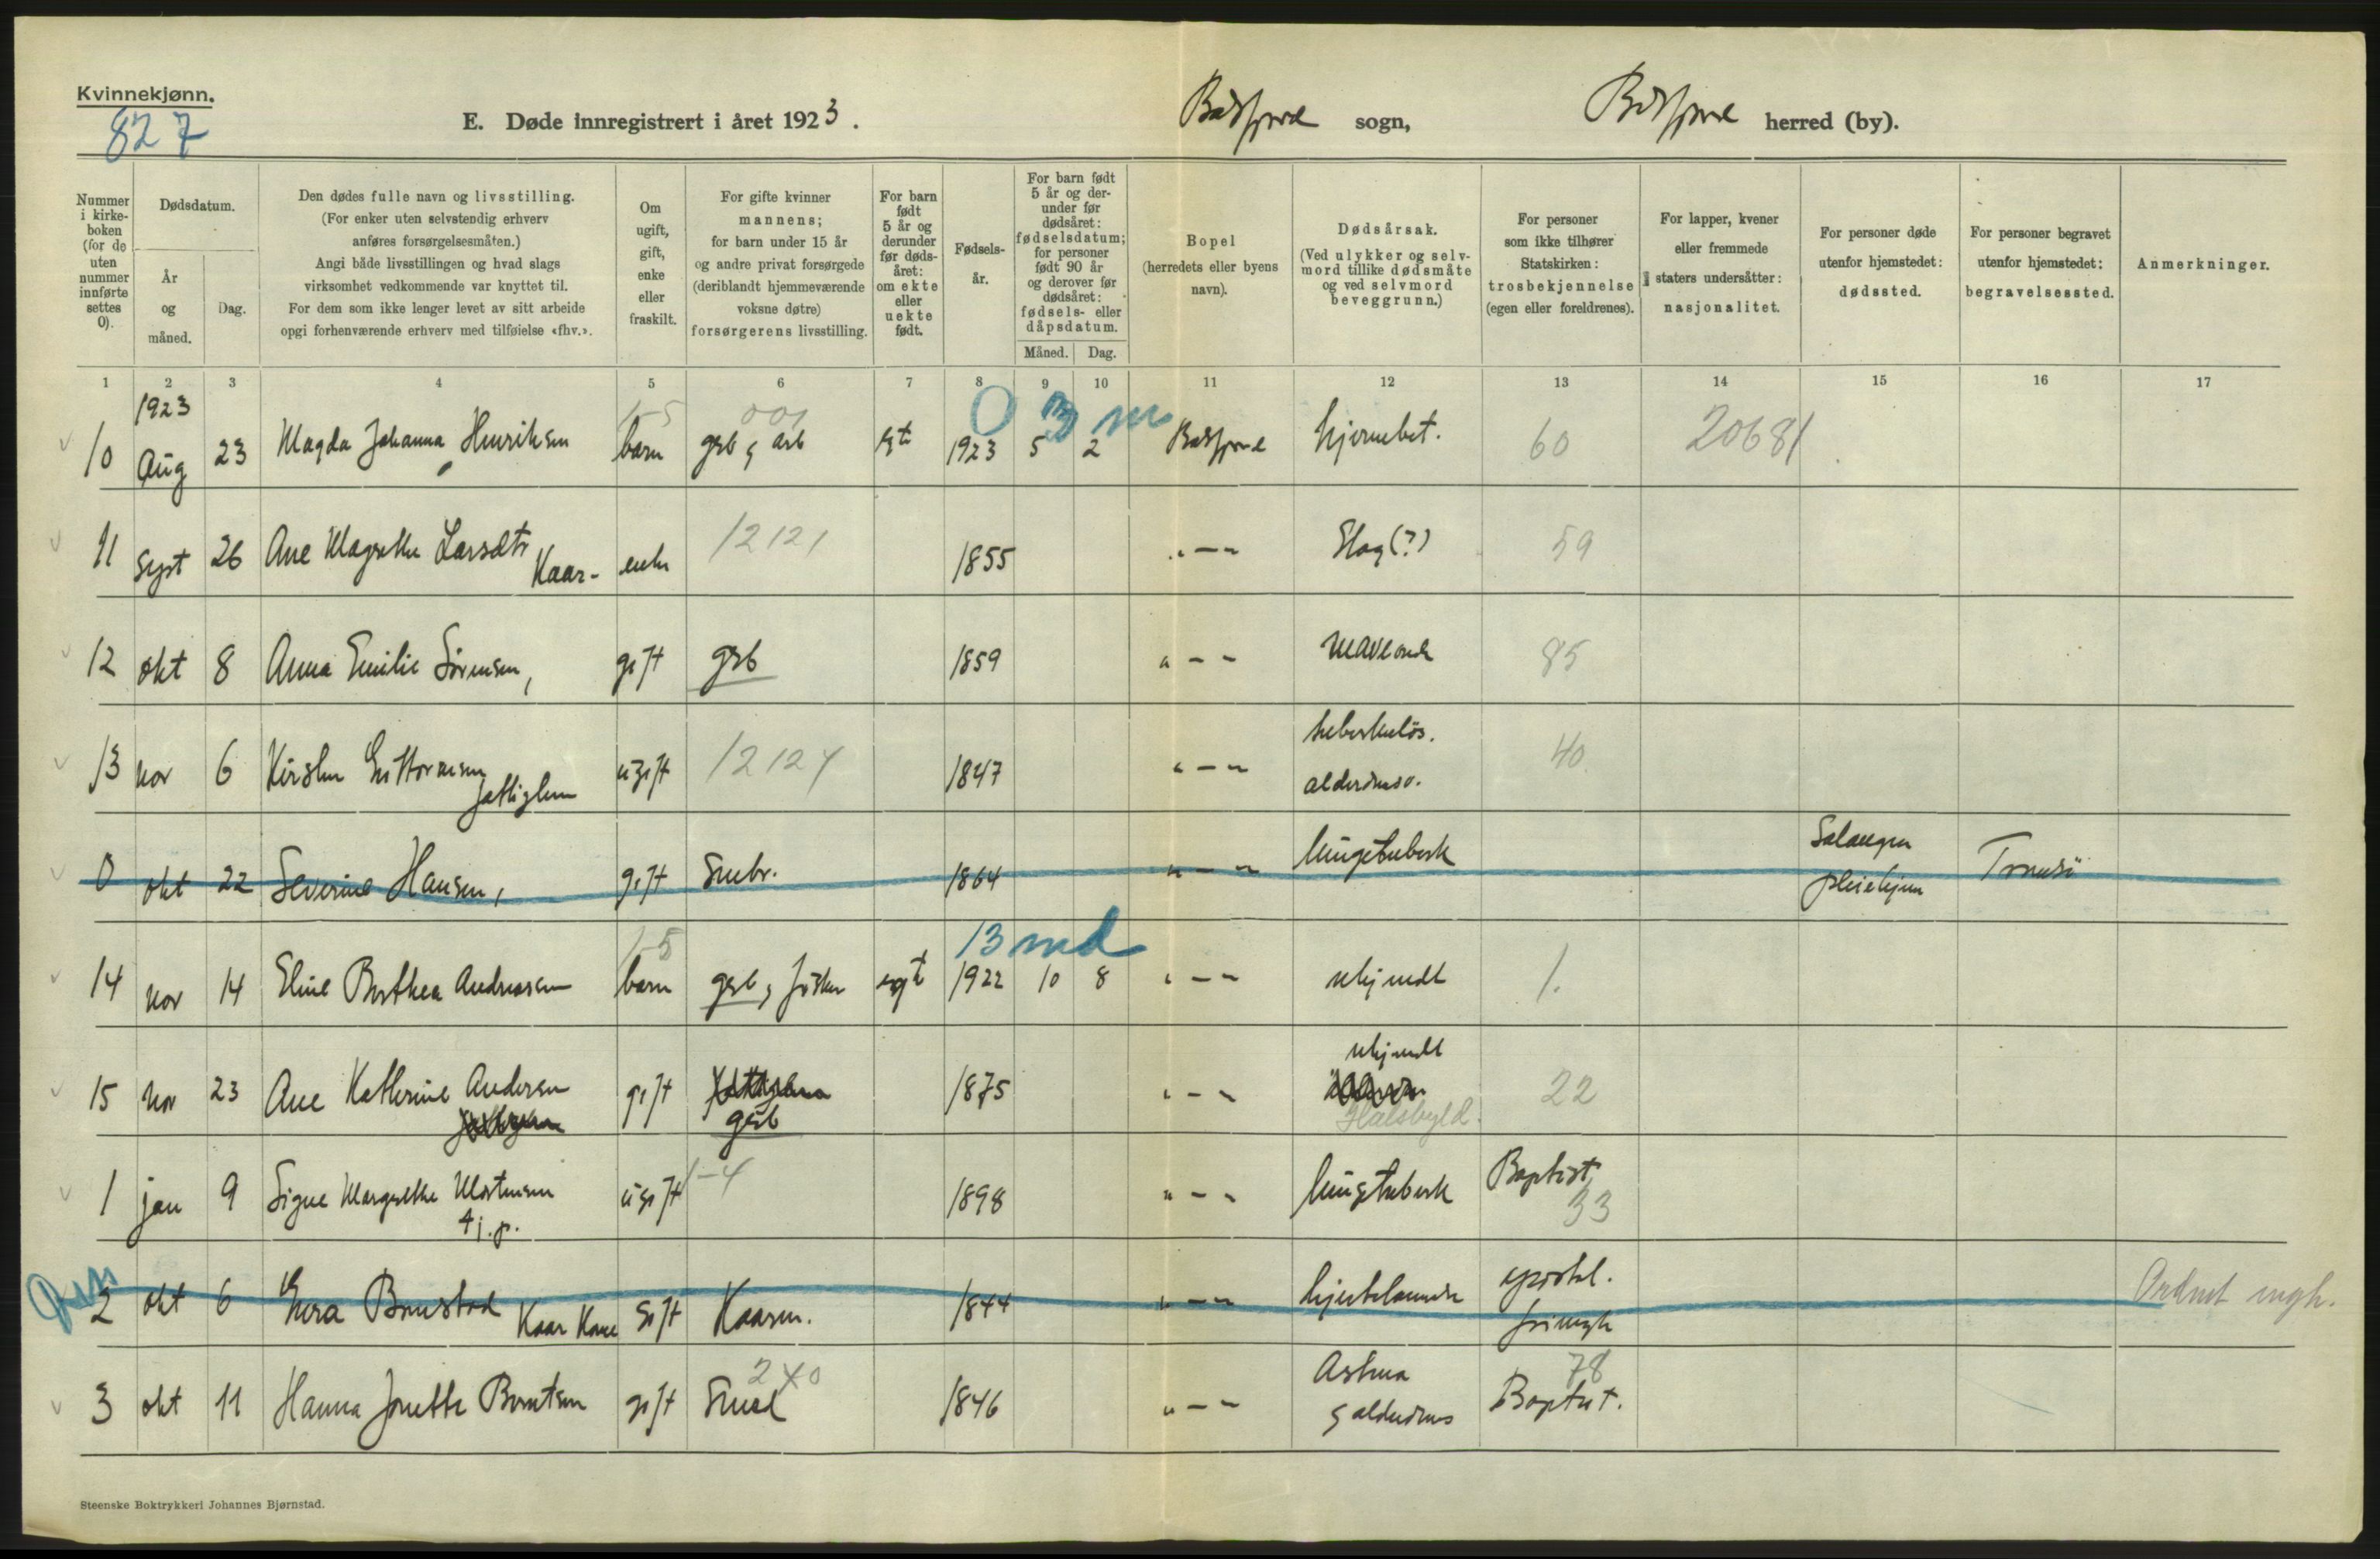 Kvinnekjønn.
827
E. Døde innregistrert i året 1923.
Balsfjord sogn,
Balsfjord herred (by).
Nummer i kirkeboken (for de uten nummer innførte settes 0).
Dødsdatum.
År og måned.
Dag.
Den dødes fulle navn og livsstilling.
(For enker uten selvstendig erhverv anføres forsørgelsesmåten.)
Angi både livsstillingen og hvad slags virksomhet vedkommende var knyttet til.
For dem som ikke lenger levet av sitt arbeide opgi forhenværende erhverv med tilføielse «fhv.».
Om ugift, gift, enke eller fraskilt.
For gifte kvinner mannens; for barn under 15 år og andre privat forsørgede (deriblandt hjemmeværende voksne døtre) forsørgerens livsstilling.
For barn født 5 år og derunder før dødsåret: om ekte eller uekte født.
Fødselsår.
For barn født 5 år og derunder før dødsåret: fødselsdatum; for personer født 90 år og derover før dødsåret: fødsels- eller dåpsdatum.
Måned. Dag.
Bopel (herredets eller byens navn).
Dødsårsak.
(Ved ulykker og selvmord tillike dødsmåte og ved selvmord beveggrunn.)
For personer som ikke tilhører Statskirken: trosbekjennelse (egen eller foreldrenes).
For lapper, kvener eller fremmede staters undersåtter: nasjonalitet.
For personer døde utenfor hjemstedet: dødssted.
For personer begravet utenfor hjemstedet: begravelsessted.
Anmerkninger.
1 2 3 4 5 6 7 8 9 10 11 12 13 14 15 16 17
1923
1-5 001 0 3 m
10 Aug 23 Magda Johanna Henriksen barn grb g arb egt 1923 5 2 Balsfjord hjernebet. 60 20681
11 Sept 26 Ane Magrethe Larsdtr Kaar- enke 12121 1855 " - - Slag (?) 59
12 okt 8 Anna Emilie Sørensen, gift grb 1859 " - - mave 85
13 nov 6 Kirsten Guttormsen fattiglem ugift 12124 1847 " - - tuberkulös. alderdomssv. 40
0 okt 22 Severine Hansen, gift Smbr. 1864 " - - lungetuberk Salangen pleiehjem Tromsö
1-5 13 md
14 nov 14 Eline Berthea Andreasen barn grb, fisker egt 1922 10 8 " - - ukjendt 1.
15 nov 23 Ane Kathrine Andersen gift grb 1875 " - - ukjendt Halsbyld. 22
1 jan 9 Signe Margrethe Mortensen tj. p. ugift 1-4 1898 " - - lungetuberk Baptist 33
2 okt 6 Kaar Kone gift Kaarm. 1844 " - - frimgh Ordnet mgh.
3 okt 11 Hanna Jonette Berntsen gift Smed 240 1846 " - - Astma g alderdoms 78 Baptist.
Steenske Boktrykkeri Johannes Bjørnstad.